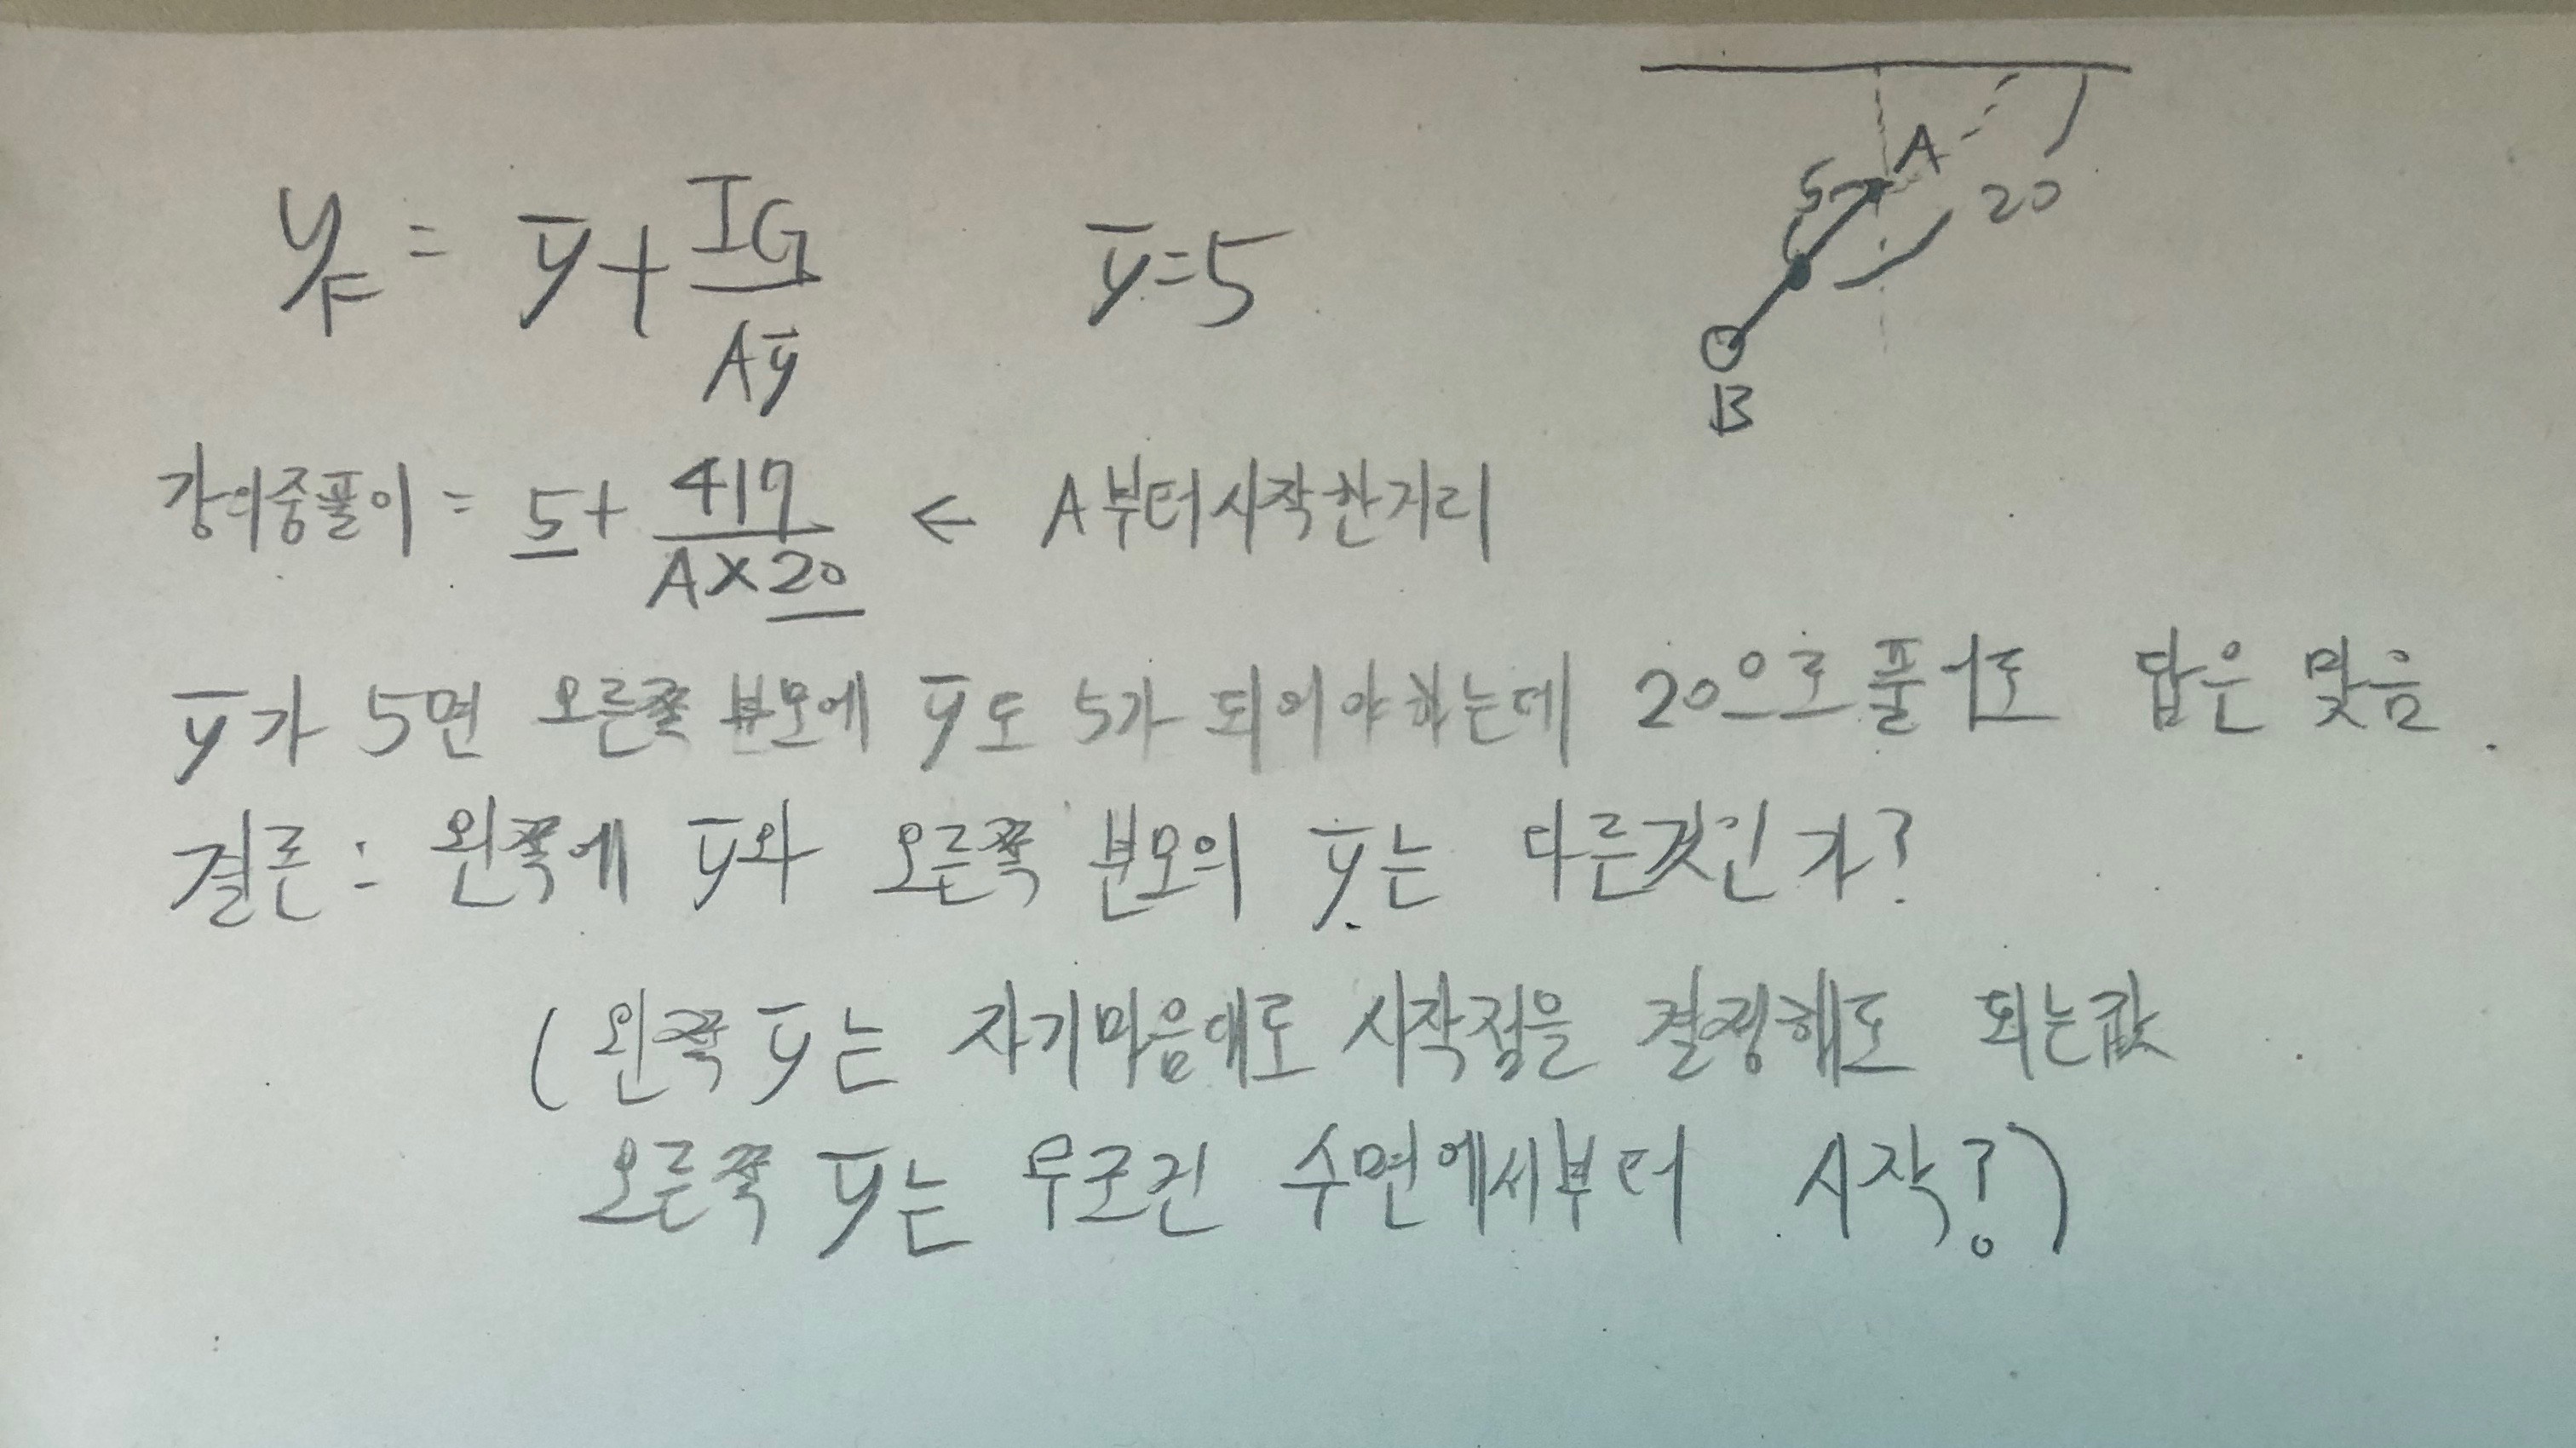 y_F = ȳ + IG / Aȳ    ȳ=5
A
5
20
B
강의중풀이 = 5 + 417 / A×20 ← A부터시작한거리
ȳ가 5면 오른쪽 분모에 ȳ도 5가 되어야하는데 20으로풀어도 답은 맞음.
결론: 왼쪽에 ȳ와 오른쪽 분모의 ȳ는 다른것인가?
(왼쪽 ȳ는 자기마음대로 시작점을 결정해도 되는값
오른쪽 ȳ는 무조건 수면에서부터 시작?)